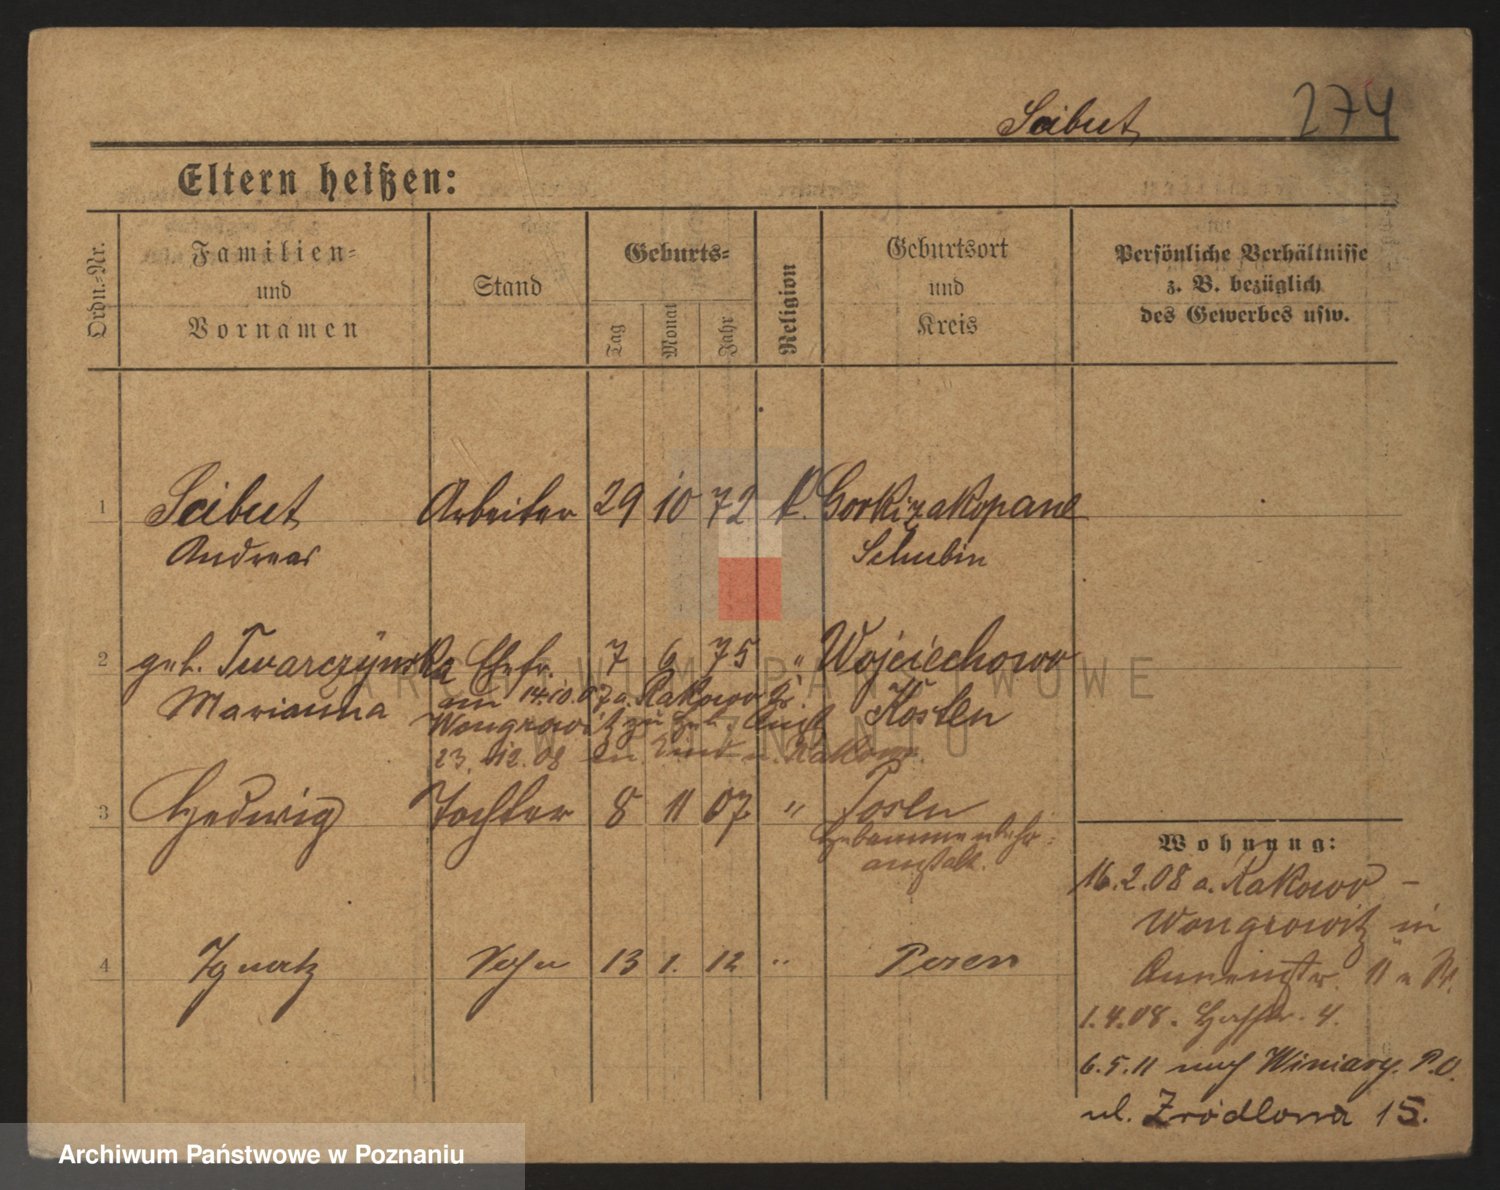 Scibut 274
Eltern heißen:
Ordn.-Nr.
Familien-
und
Vornamen
Stand
Geburts-
Tag
Monat
Jahr
Religion
Geburtsort
und
Kreis
Persönliche Verhältnisse
z. B. bezüglich
des Gewerbes usw.
1 Scibut Arbeiter 29 10 72 k. Gorkizakopane
Andreas Schubin
2 geb. Twarczynska Ehefr. 7 6 75 " Wojciechowo
Marianna am 14.10.07 a. Rakowo Kr. Kosten
Wongrowitz
23.12.08 Rakowo
3 Hedwig Tochter 8 11 07 " Posen
Hebammenlehr-
anstalt.
Wohnung:
16.2.08 a. Rakowo -
Wongrowitz in
4 Ignatz Sohn 13 1. 12 " Posen
1.4.08. 4.
6.5.11 nach Winiary. P.O.
ul. Źródlana 15.
ARCHIWUM PAŃSTWOWE
W POZNANIU
Archiwum Państwowe w Poznaniu